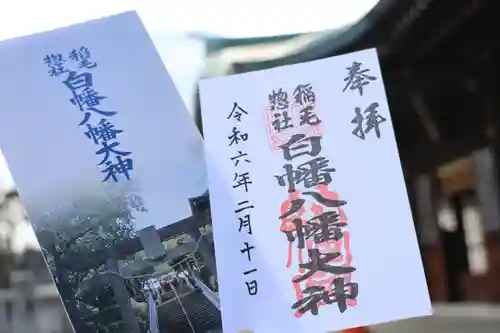 稲毛
惣社
白幡八幡大神
奉拝
稲毛
惣社
白幡八幡大神
令和六年二月十一日